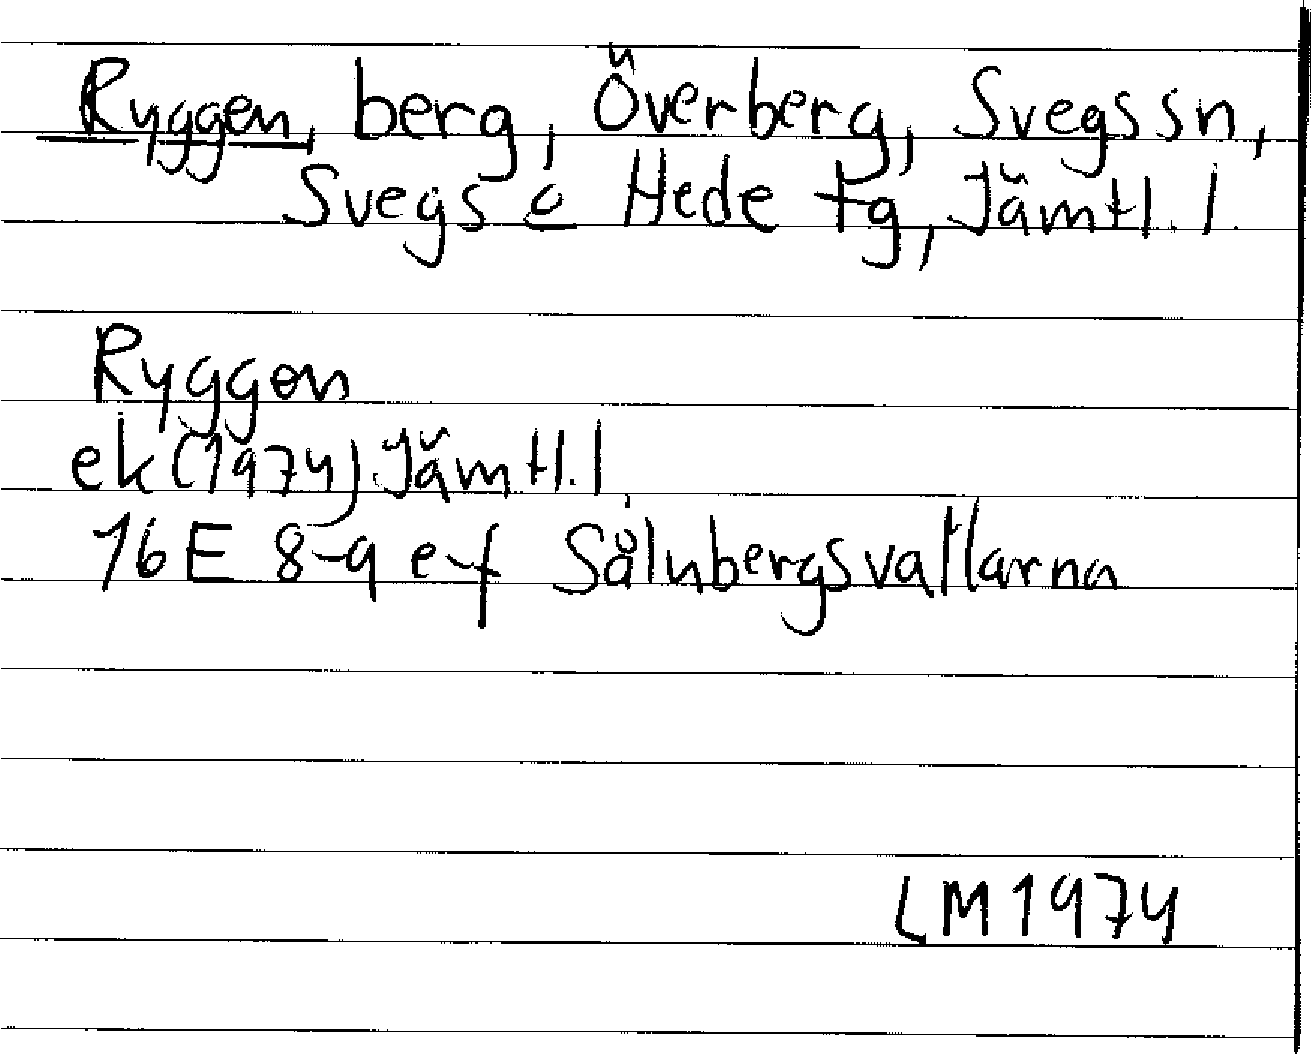 Ryggen, berg, Överberg, Svegs sn,
Svegs o Hede tg, Jämtl. l.
Ryggen
ek (1974) Jämtl. l
16E 8-9 e-f Sålnbergsvallarna
LM 1974